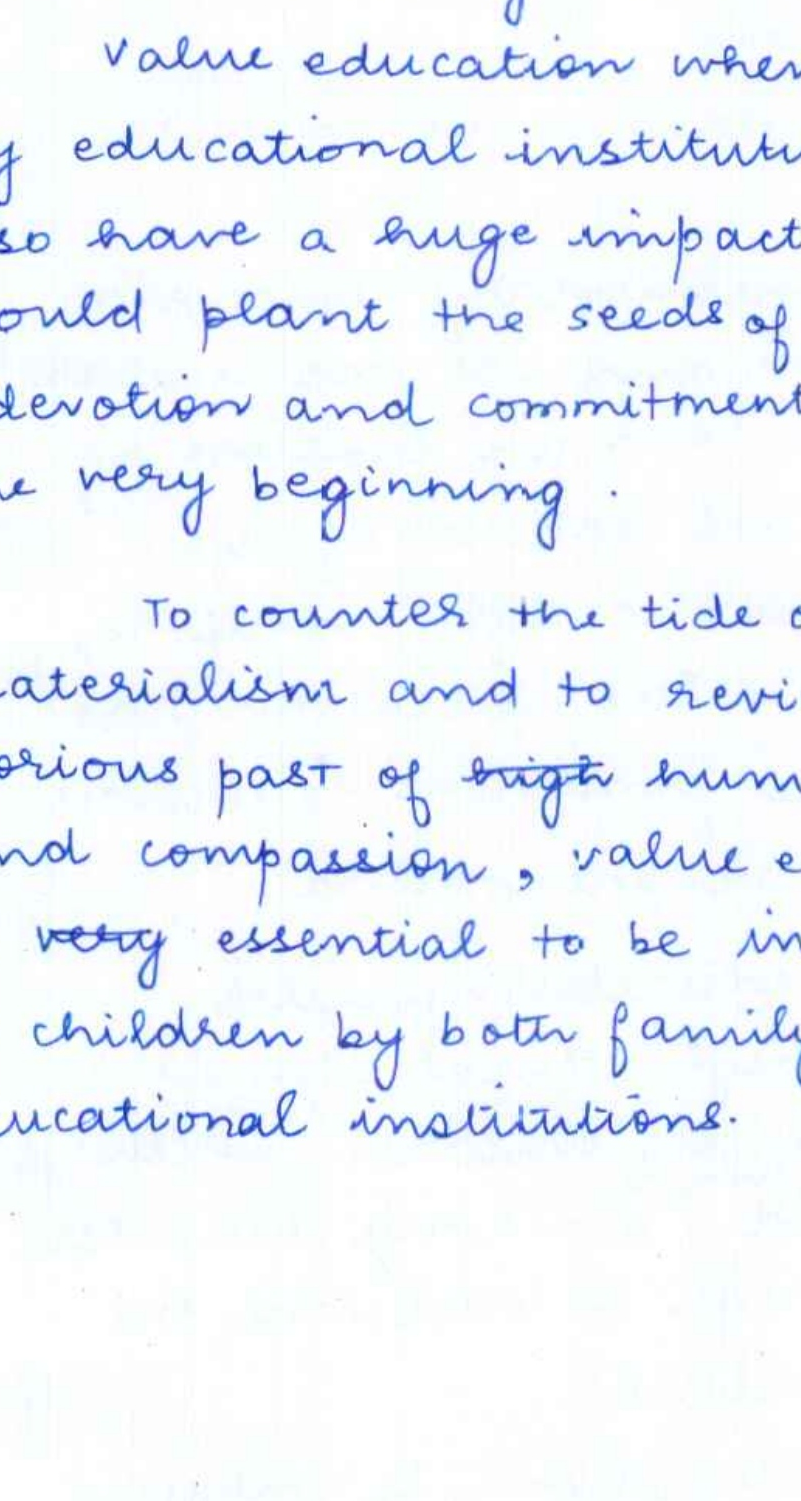 Value education when
y educational institutu
so have a huge impact
ould plant the seeds of
devotion and commitment
e very beginning.
To counter the tide
aterialism and to revi
orious past of high hum
nd compassion, value e
very essential to be in
children by both family
ucational institutions.